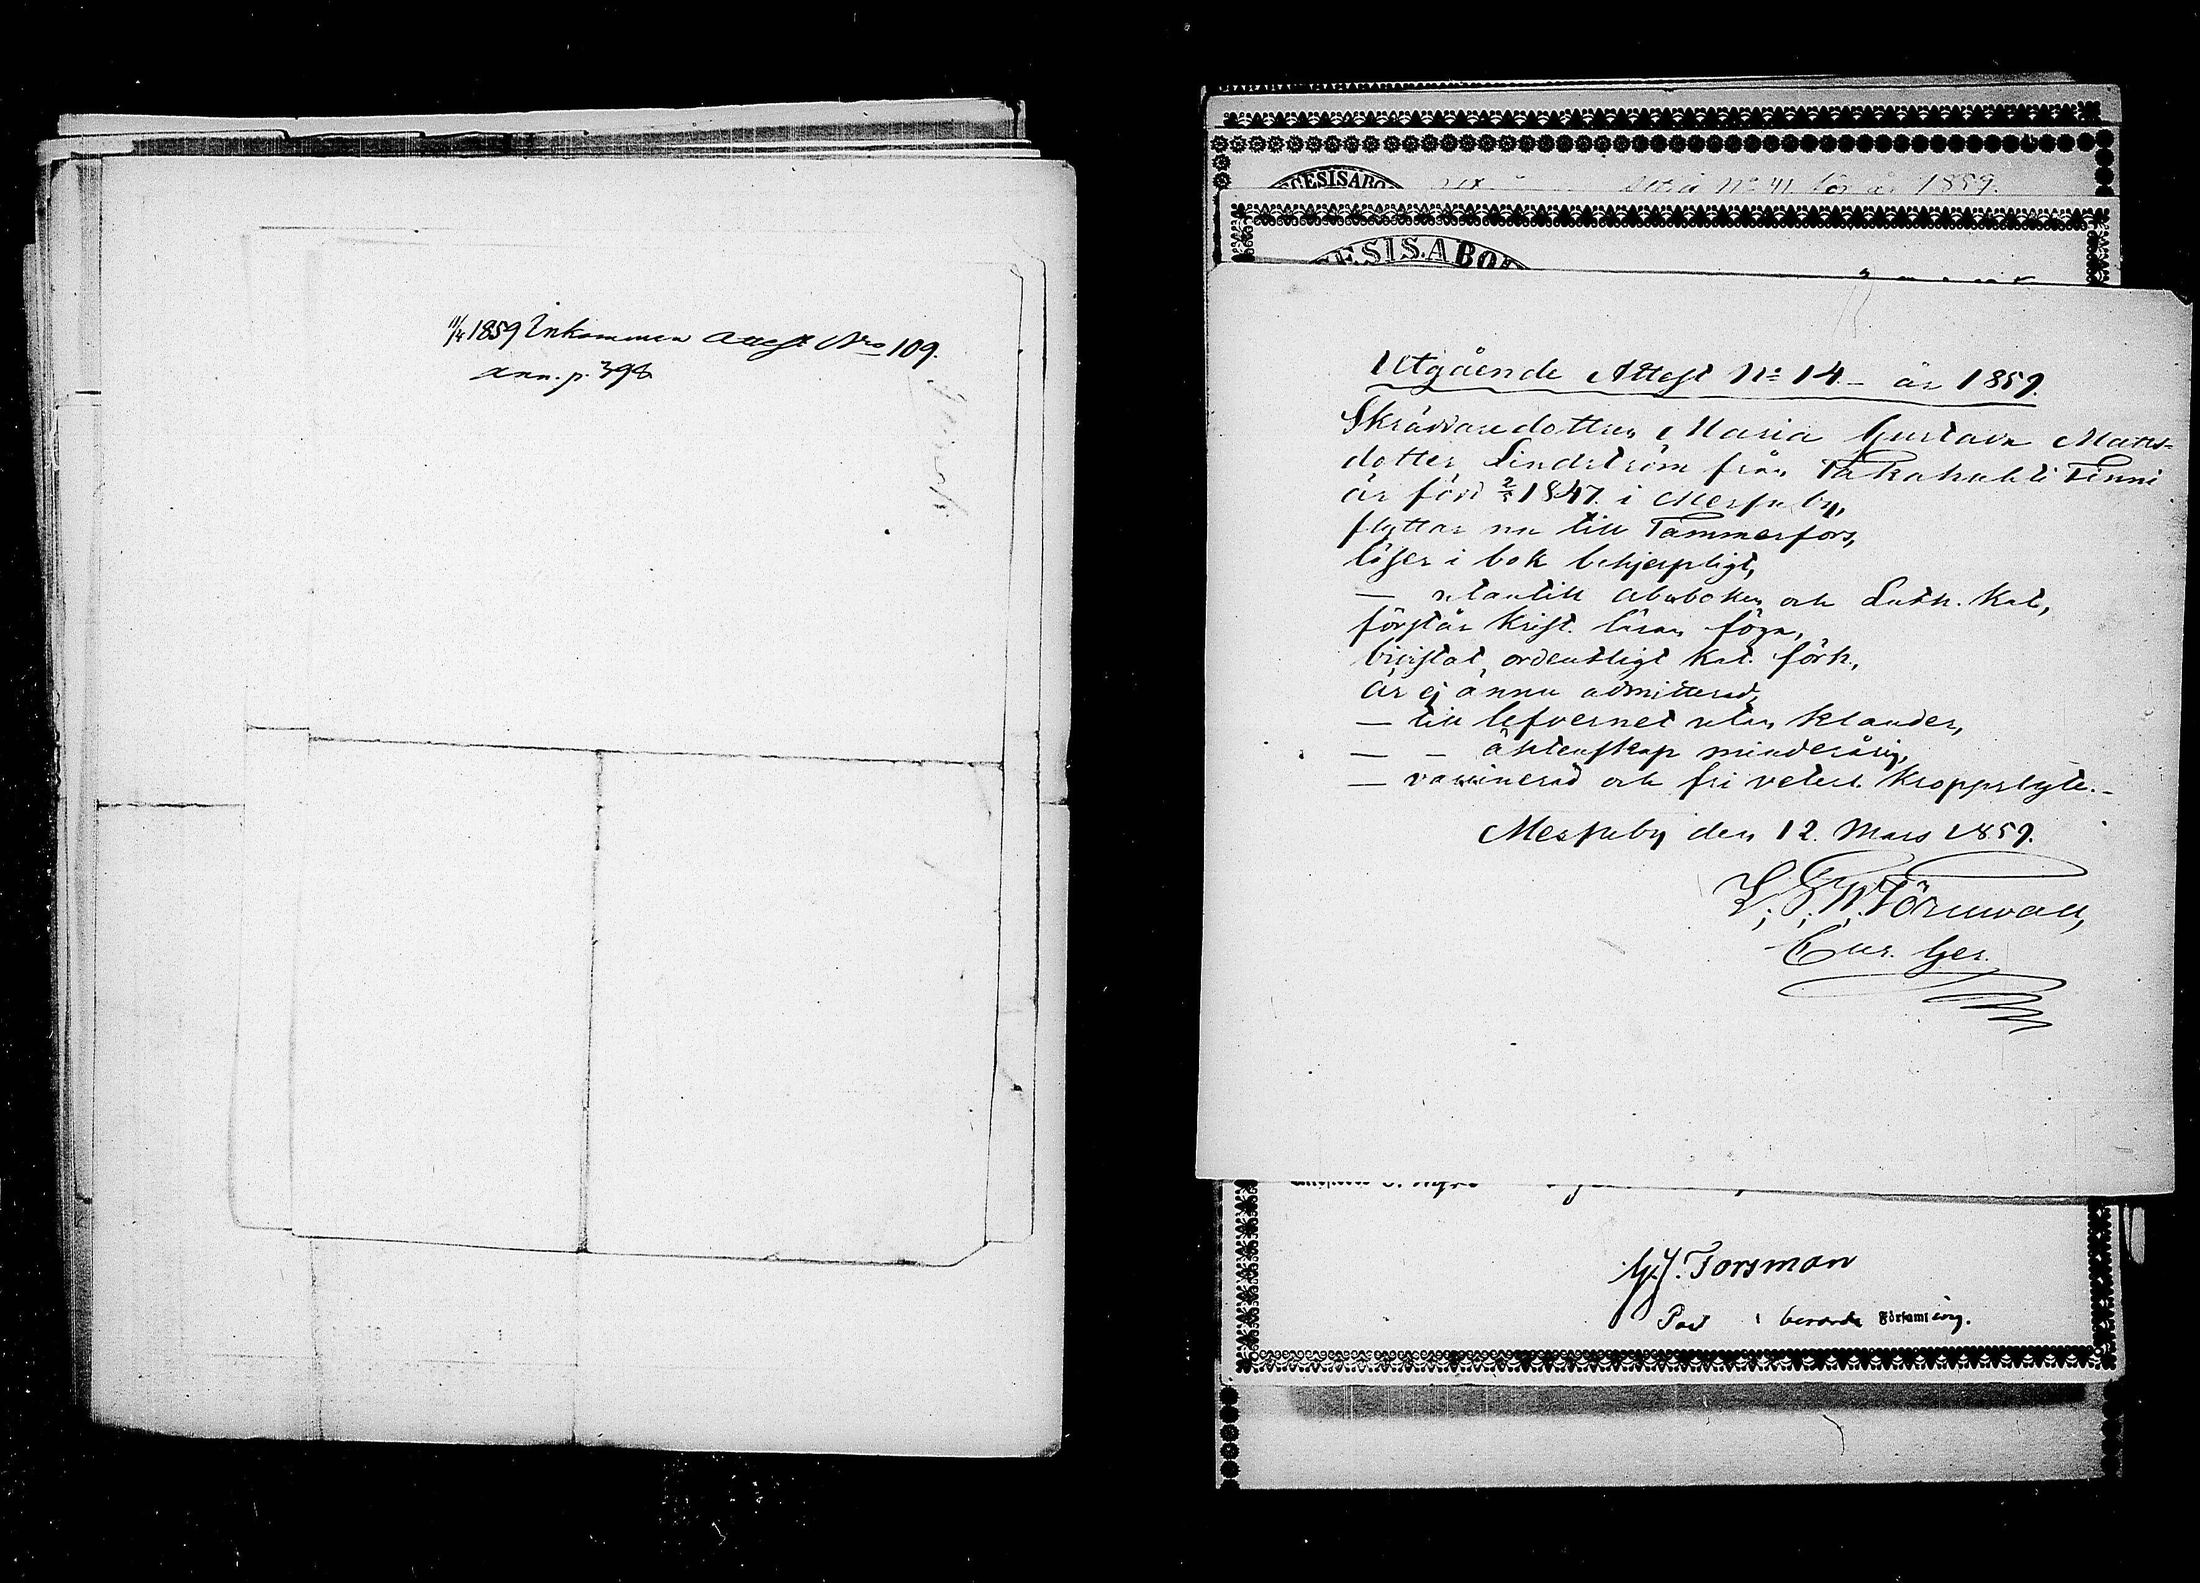 11/4 1859 Inkommen Attest Nro 109.
ann. p. 398.
GESISABO
Attest No 41 för år 1859.
ESIS.ABOE
Utgående Attest No 14 – år 1859.
Skräddaredottren Maria Gustava Matts-
dotter Lindström från Takahuhti Finni
är född 2/5 1847. i Messuby,
flyttar nu till Tammerfors,
läser i bok behjerpligt,
— utantill Abcboken och Luth. Kat,
förstår Krist. läran föga,
bivistat ordentligt Kat. förh.,
är ej ännu admitterad,
— till lefvernet utan klander,
— — äktenskap minderårig,
— vaccinerad och fri veterl. kroppslyte. –
Messuby den 12. Mars 1859.
L. G. W. Törnwall,
Cur. Ger.
G.J. Forsman
Past i berörde Församling.